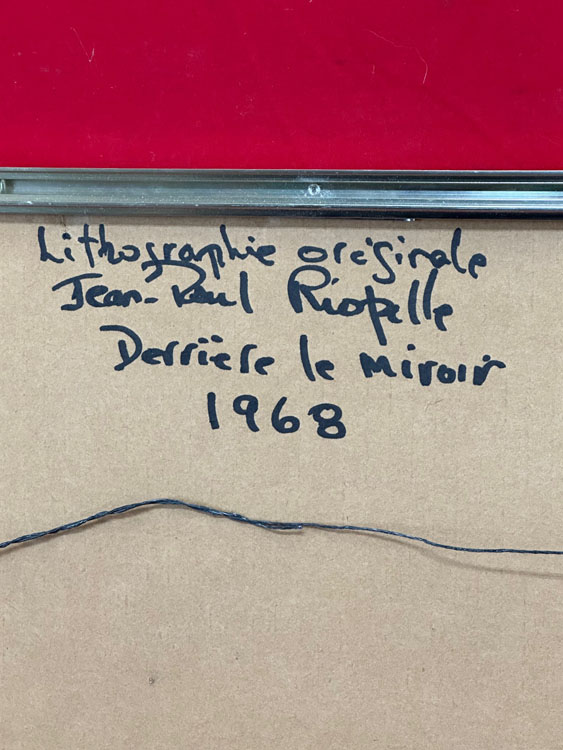 Lithographie originale
Jean-Paul Riopelle
Derrière le miroir
1968